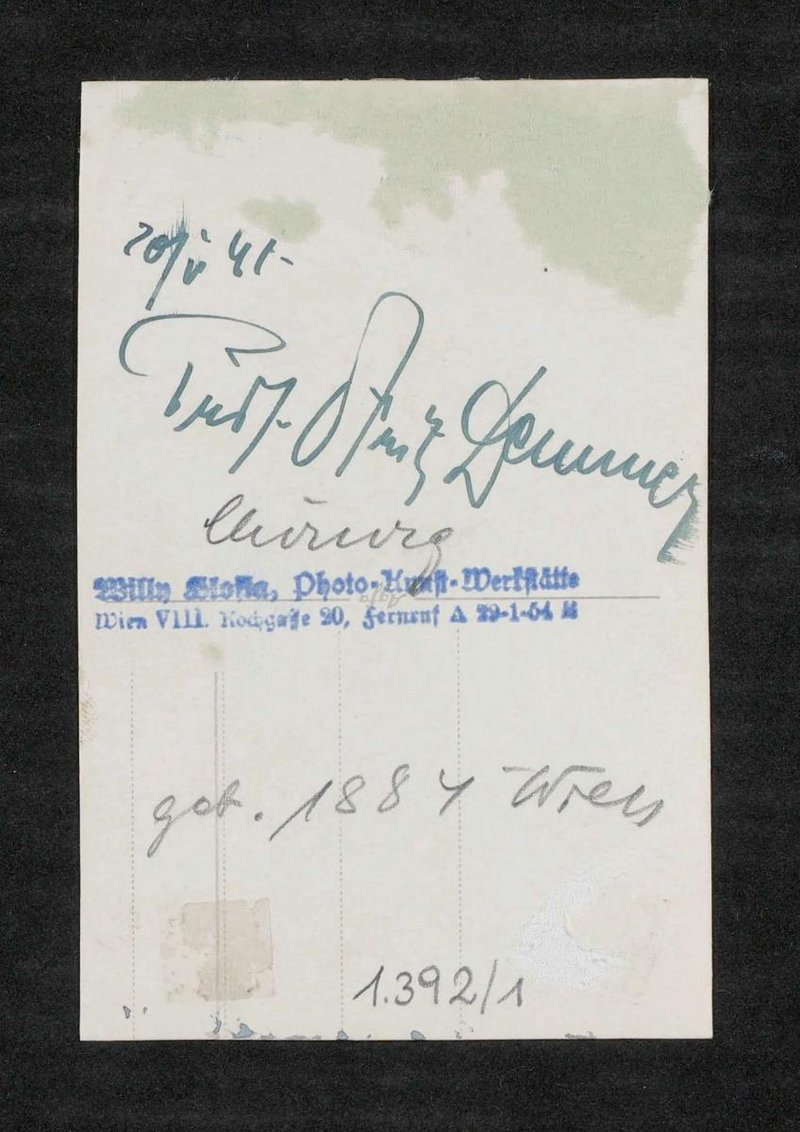 20/V 41-
Prof. Fritz Demmer
Chirurg
Willy Kloss, Photo-Kunst-Werkstätte
Wien VIII. Kochgasse 20, Fernruf A 29-1-54 B
geb. 1884 Wien
1.392/1